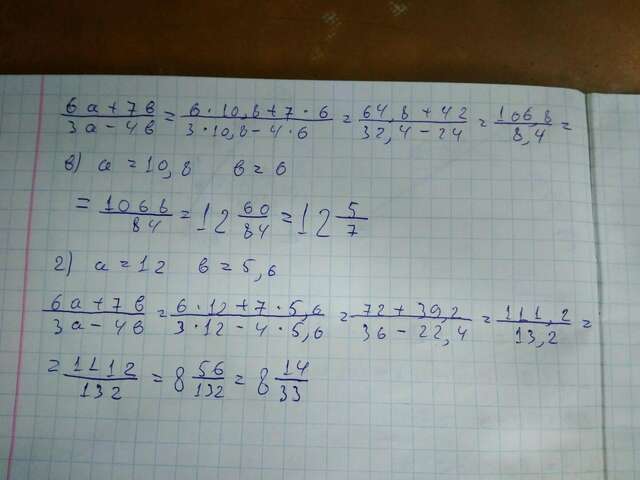 6a + 7в / 3a - 4в = 6 · 10,8 + 7 · 6 / 3 · 10,8 - 4 · 6 = 64,8 + 42 / 32,4 - 24 = 106,8 / 8,4 =
в) a = 10,8 в = 6
= 1068 / 84 = 12 60/84 = 12 5/7
г) a = 12 в = 5,6
6a + 7в / 3a - 4в = 6 · 12 + 7 · 5,6 / 3 · 12 - 4 · 5,6 = 72 + 39,2 / 36 - 22,4 = 111,2 / 13,2 =
= 1112 / 132 = 8 56/132 = 8 14/33